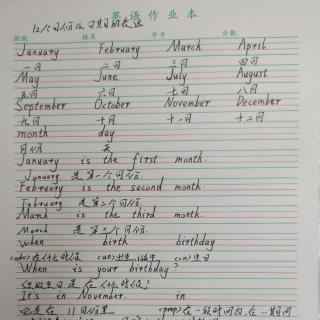 英语作业本
12个月份以及日期的表达
班级 姓名 学号 分数
January February March April
一月 二月 三月 四月
May June July August
五月 六月 七月 八月
September October November December
九月 十月 十一月 十二月
month day
月份 天
January is the first month.
January 是第一个月份.
February is the second month.
February 是第二个月份.
March is the third month.
March 是第三个月份.
when birth birthday
在什么时候 (un)出生;诞生 (un)生日
When is your birthday?
你的生日是在什么时候?
It's in November. in
它是在11月份里 (prep)在一段时间内,在一期间